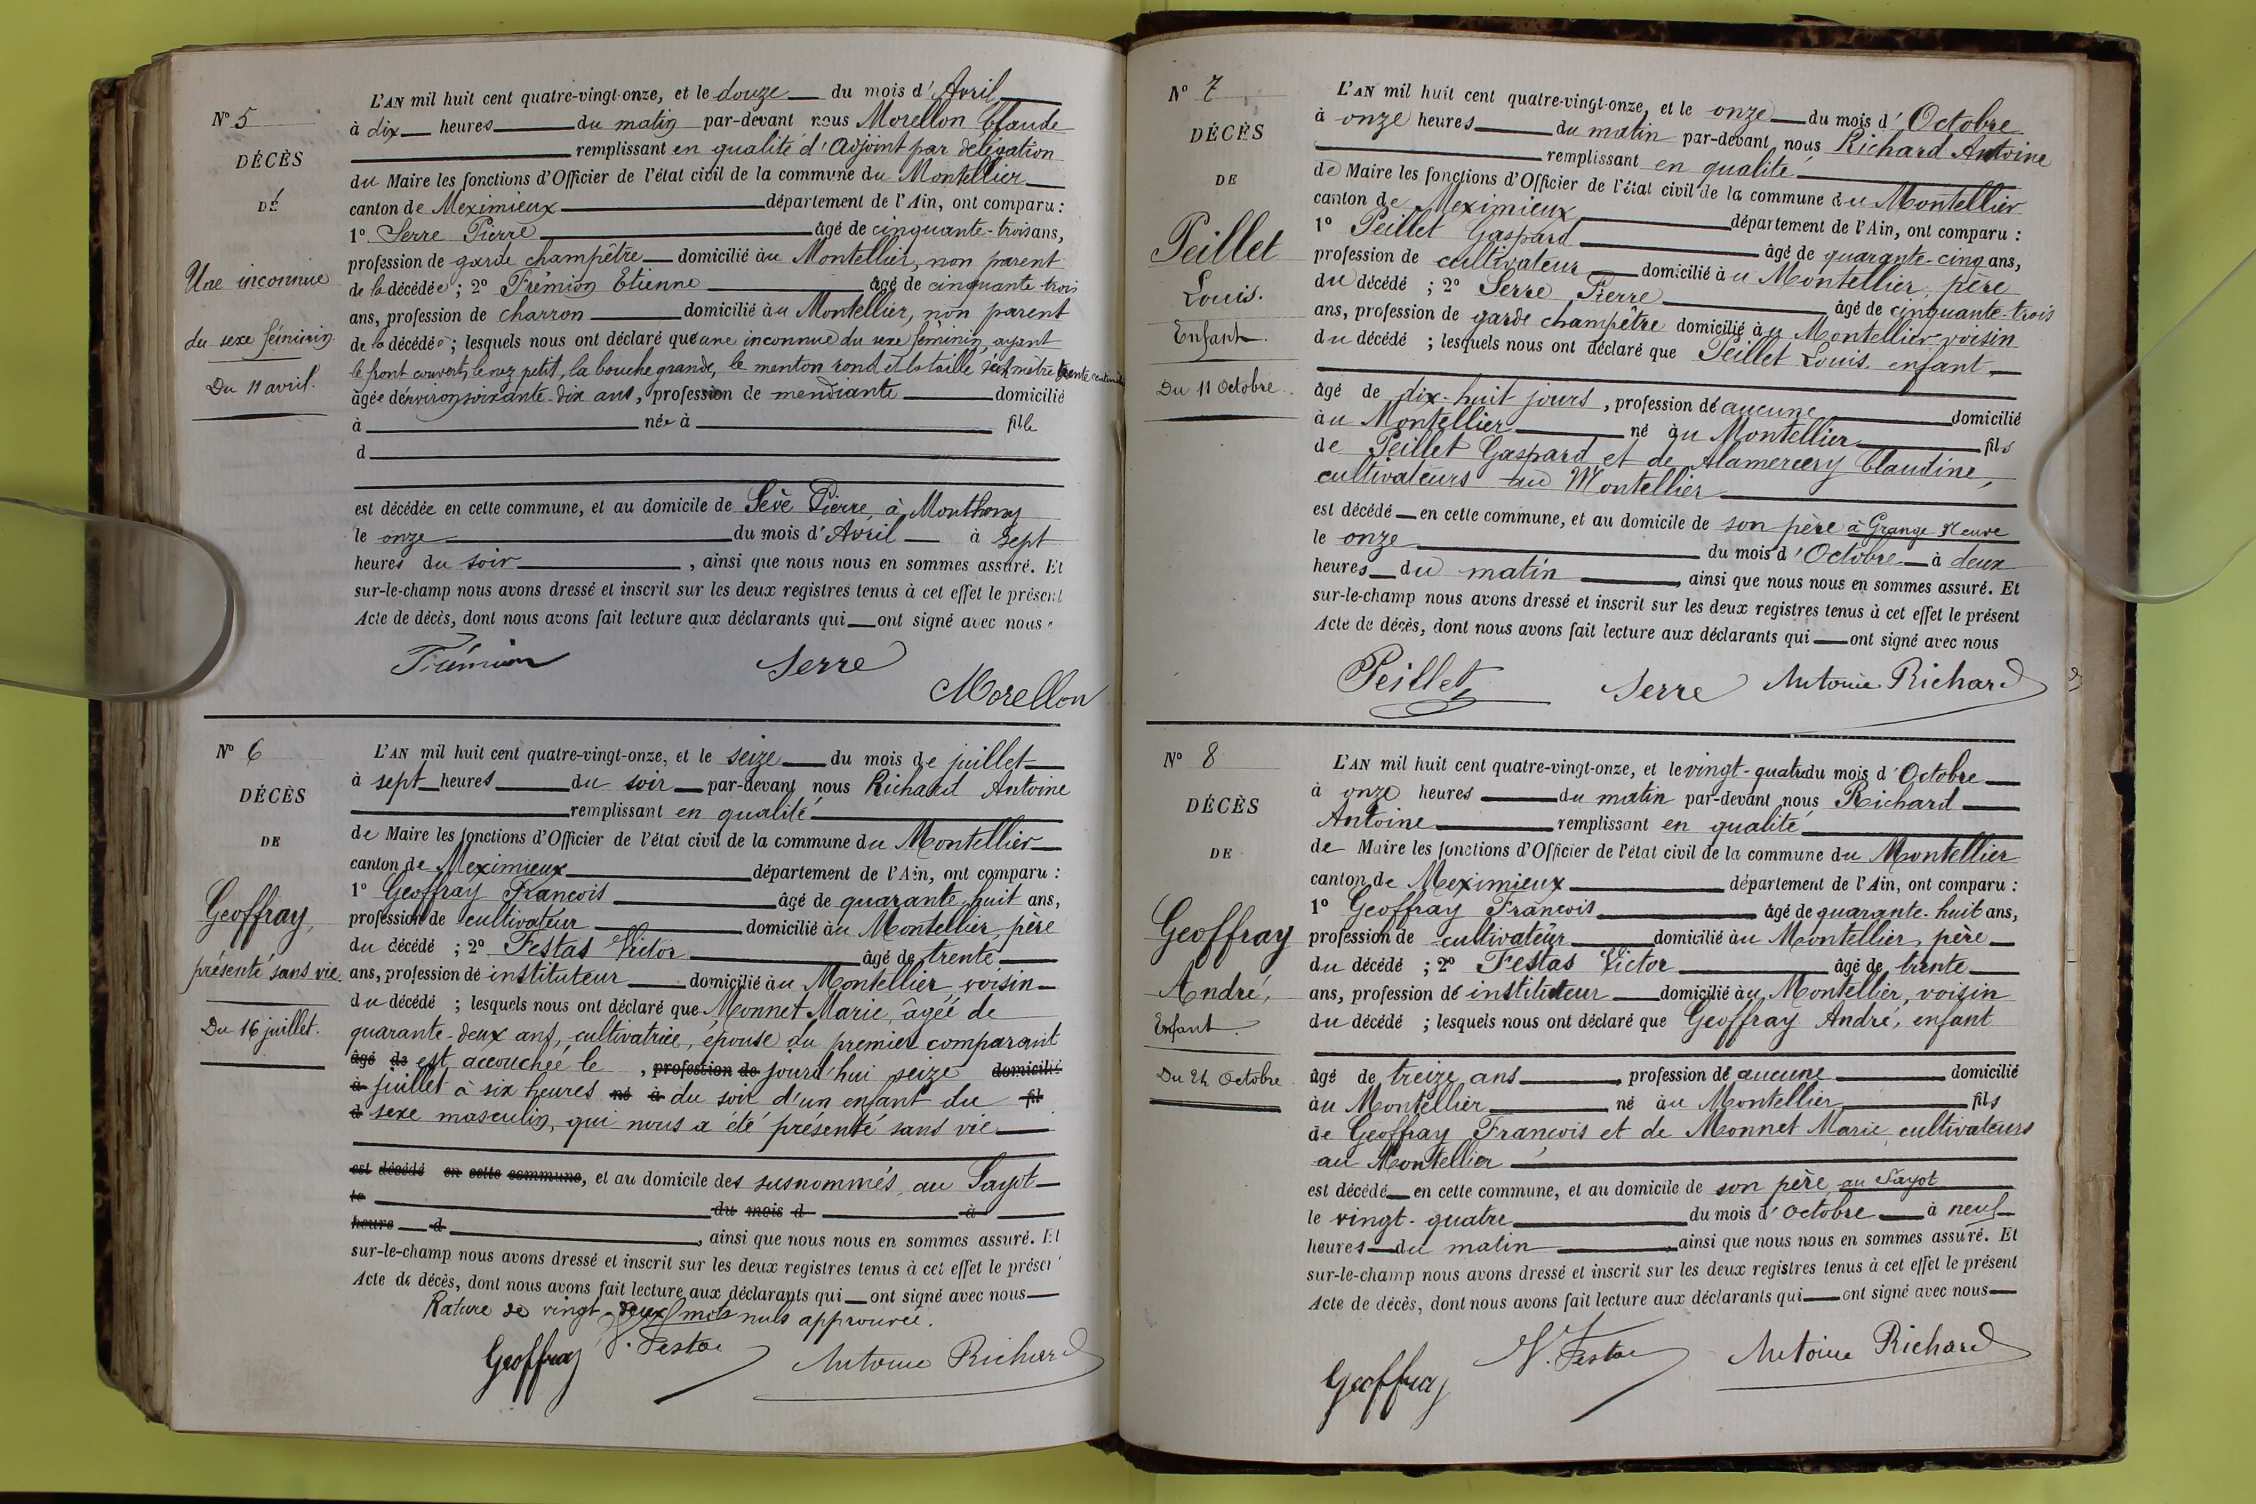 N° 5
DÉCÈS
DE
Une inconnue
du sexe féminin
Du 11 avril.
L'AN mil huit cent quatre-vingt-onze, et le douze du mois d'Avril
à dix heures du matin par-devant nous Morellon Claude
remplissant en qualité d'Adjoint par délégation
du Maire les fonctions d'Officier de l'état civil de la commune du Montellier
canton de Meximieux département de l'Ain, ont comparu :
1° Serre Pierre âgé de cinquante-trois ans,
profession de garde champêtre domicilié au Montellier, non parent
de la décédée ; 2° Frémion Etienne âgé de cinquante trois
ans, profession de charron domicilié au Montellier, non parent
de la décédée ; lesquels nous ont déclaré que une inconnue du sexe féminin, ayant
le front couvert, le nez petit, la bouche grande, le menton rond et la taille d'un mètre trente centimètres
âgée d'environ soixante-dix ans, profession de mendiante domicilié
à née à fille
d
est décédée en cette commune, et au domicile de Sève Pierre, à Monthony
le onze du mois d'Avril à sept
heures du soir, ainsi que nous nous en sommes assuré. Et
sur-le-champ nous avons dressé et inscrit sur les deux registres tenus à cet effet le présent
Acte de décès, dont nous avons fait lecture aux déclarants qui ont signé avec nous
Frémion Serre
Morellon
N° 6
DÉCÈS
DE
Geoffray,
présenté sans vie
Du 16 juillet.
L'AN mil huit cent quatre-vingt-onze, et le seize du mois de juillet
à sept heures du soir par-devant nous Richard Antoine
remplissant en qualité
de Maire les fonctions d'Officier de l'état civil de la commune du Montellier
canton de Meximieux département de l'Ain, ont comparu :
1° Geoffray François âgé de quarante-huit ans,
profession de cultivateur domicilié au Montellier, père
du décédé ; 2° Festas Victor âgé de trente
ans, profession de instituteur domicilié au Montellier voisin
du décédé ; lesquels nous ont déclaré que Monnet Marie, âgée de
quarante-deux ans, cultivatrice, épouse du premier comparant
âgé de est accouchée le , profession de jourd'hui seize domicilié
à juillet à six heures né à du soir d'un enfant du fil
d sexe masculin, qui nous a été présenté sans vie
est décédé en cette commune, et au domicile des susnommés, au Sayot
le du mois d à
heure d , ainsi que nous nous en sommes assuré. Et
sur-le-champ nous avons dressé et inscrit sur les deux registres tenus à cet effet le présent
Acte de décès, dont nous avons fait lecture aux déclarants qui ont signé avec nous
Rature de vingt-deux mots nuls approuvée.
Geoffray V. Festas Antoine Richard
N° 7
DÉCÈS
DE
Peillet
Louis.
Enfant.
Du 11 Octobre.
L'AN mil huit cent quatre-vingt-onze, et le onze du mois d'Octobre
à onze heures du matin par-devant nous Richard Antoine
remplissant en qualité
de Maire les fonctions d'Officier de l'état civil de la commune du Montellier
canton de Meximieux département de l'Ain, ont comparu :
1° Peillet Gaspard âgé de quarante-cinq ans,
profession de cultivateur domicilié au Montellier, père
du décédé ; 2° Serre Pierre âgé de cinquante-trois
ans, profession de garde champêtre domicilié au Montellier voisin
du décédé ; lesquels nous ont déclaré que Peillet Louis, enfant
âgé de dix-huit jours, profession de aucune domicilié
au Montellier né au Montellier fils
de Peillet Gaspard et de Alamercery Claudine,
cultivateurs au Montellier
est décédé en cette commune, et au domicile de son père à Grange Neuve
le onze du mois d'Octobre à deux
heures du matin, ainsi que nous nous en sommes assuré. Et
sur-le-champ nous avons dressé et inscrit sur les deux registres tenus à cet effet le présent
Acte de décès, dont nous avons fait lecture aux déclarants qui ont signé avec nous
Peillet Serre Antoine Richard
N° 8
DÉCÈS
DE
Geoffray
André,
Enfant.
Du 24 Octobre
L'AN mil huit cent quatre-vingt-onze, et le vingt-quatre du mois d'Octobre
à onze heures du matin par-devant nous Richard
Antoine remplissant en qualité
de Maire les fonctions d'Officier de l'état civil de la commune du Montellier
canton de Meximieux département de l'Ain, ont comparu :
1° Geoffray François âgé de quarante-huit ans,
profession de cultivateur domicilié au Montellier, père
du décédé ; 2° Festas Victor âgé de trente
ans, profession de instituteur domicilié au Montellier, voisin
du décédé ; lesquels nous ont déclaré que Geoffray André, enfant
âgé de treize ans, profession de aucune domicilié
au Montellier né au Montellier fils
de Geoffray François et de Monnet Marie, cultivateurs
au Montellier
est décédé en cette commune, et au domicile de son père au Sayot
le vingt-quatre du mois d'Octobre à neuf
heures du matin, ainsi que nous nous en sommes assuré. Et
sur-le-champ nous avons dressé et inscrit sur les deux registres tenus à cet effet le présent
Acte de décès, dont nous avons fait lecture aux déclarants qui ont signé avec nous
Geoffray V. Festas Antoine Richard